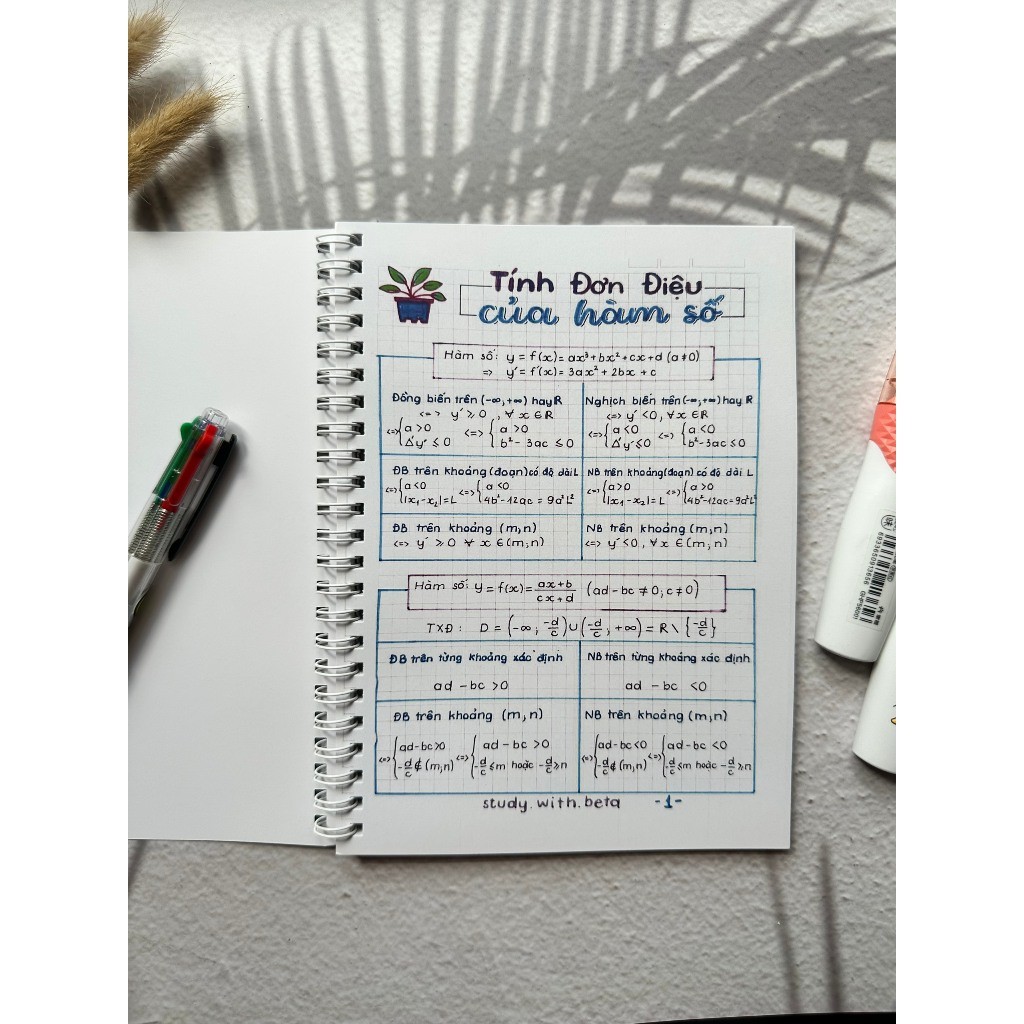 Tính Đơn Điệu
của hàm số
Hàm số: y = f(x) = ax³ + bx² + cx + d (a ≠ 0)
=> y' = f'(x) = 3ax² + 2bx + c
Đồng biến trên (-∞, +∞) hay R
<=> y' ≥ 0 , ∀ x ∈ R
<=> { a > 0 ; Δ'y' ≤ 0 <=> { a > 0 ; b² - 3ac ≤ 0
Nghịch biến trên (-∞, +∞) hay R
<=> y' < 0, ∀ x ∈ R
<=> { a < 0 ; Δ'y' ≤ 0 <=> { a < 0 ; b² - 3ac ≤ 0
ĐB trên khoảng (đoạn) có độ dài L
<=> { a < 0 ; |x₁ - x₂| = L <=> { a < 0 ; 4b² - 12ac = 9a²L²
NB trên khoảng (đoạn) có độ dài L
<=> { a > 0 ; |x₁ - x₂| = L <=> { a > 0 ; 4b² - 12ac = 9a²L²
ĐB trên khoảng (m; n)
<=> y' ≥ 0 ∀ x ∈ (m; n)
NB trên khoảng (m; n)
<=> y' < 0, ∀ x ∈ (m; n)
Hàm số: y = f(x) = (ax + b)/(cx + d) (ad - bc ≠ 0; c ≠ 0)
TXĐ: D = (-∞; -d/c) ∪ (-d/c; +∞) = R \ {-d/c}
ĐB trên từng khoảng xác định
ad - bc > 0
NB trên từng khoảng xác định
ad - bc < 0
ĐB trên khoảng (m; n)
<=> { ad - bc > 0 ; -d/c ∉ (m; n) <=> { ad - bc > 0 ; -d/c ≤ m hoặc -d/c ≥ n
NB trên khoảng (m; n)
<=> { ad - bc < 0 ; -d/c ∉ (m; n) <=> { ad - bc < 0 ; -d/c ≤ m hoặc -d/c ≥ n
study.with.beta -1-